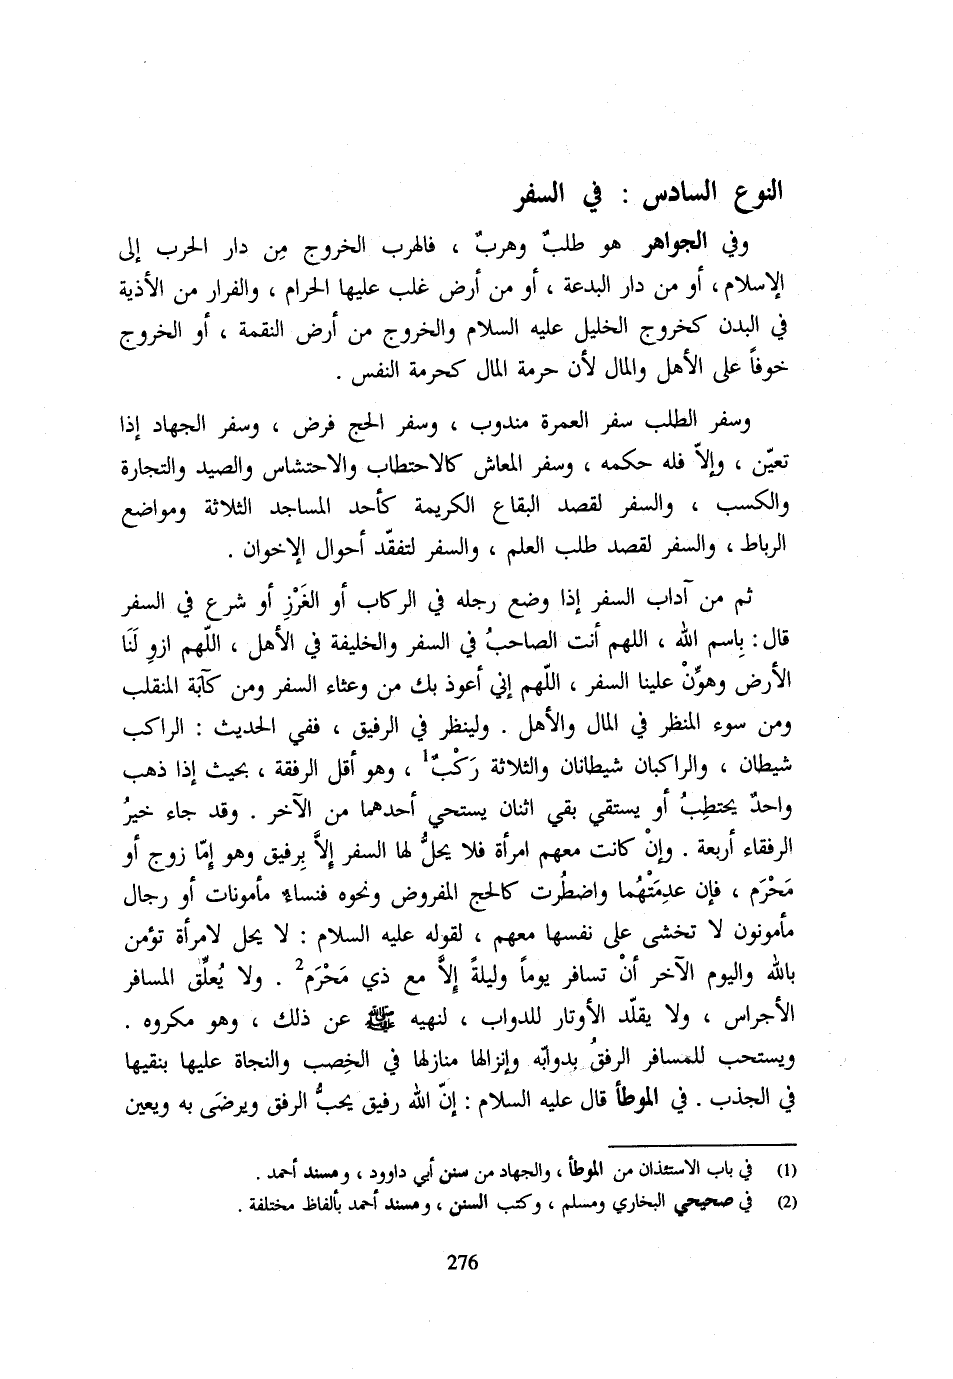 النوع السادس : في السفر
وفي الجواهر هو طلبٌ وهربٌ ، فالهرب الخروج مِن دار الحرب إلى
الإسلام ، أو من دار البدعة ، أو من أرض غلب عليها الحرام ، والفرار من الأذية
في البدن كخروج الخليل عليه السلام والخروج من أرض النقمة ، أو الخروج
خوفاً على الأهل والمال لأن حرمة المال كحرمة النفس .
وسفر الطلب سفر العمرة مندوب ، وسفر الحج فرض ، وسفر الجهاد إذا
تعيّن ، وإلاّ فله حكمه ، وسفر المعاش كالاحتطاب والاحتشاس والصيد والتجارة
والكسب ، والسفر لقصد البقاع الكريمة كأحد المساجد الثلاثة ومواضع
الرباط ، والسفر لقصد طلب العلم ، والسفر لتفقّد أحوال الإخوان .
ثم من آداب السفر إذا وضع رجله في الركاب أو الغَرْزِ أو شرع في السفر
قال : بِاسم الله ، اللهم أنت الصاحبُ في السفر والخليفة في الأهل ، اللّهم ازوِ لَنَا
الأرض وهوِّنْ علينا السفر ، اللّهم إني أعوذ بك من وعثاء السفر ومن كآبَة المنقلب
ومن سوء المنظر في المال والأهل . ولينظر في الرفيق ، ففي الحديث : الراكب
شيطان ، والراكبان شيطانان والثلاثة رَكْبٌ1 ، وهو أقل الرفقة ، بحيث إذا ذهب
واحدٌ يحتطِبُ أو يستقي بقي اثنان يستحي أحدهما من الآخر . وقد جاء خيرُ
الرفقاء أربعة . وإنْ كانت معهم امرأة فلا يحلُّ لها السفر إلاَّ بِرفيق وهو إمّا زوج أو
مَحْرَم ، فإن عدِمَتْهُما واضطُرت كالحج المفروض ونحوه فنساءٌ مأمونات أو رجال
مأمونون لا تخشى على نفسها معهم ، لقوله عليه السلام : لا يحل لامرأة تؤمن
بالله واليوم الآخر أنْ تسافر يوماً وليلةً إلاَّ مع ذي مَحْرَم2 . ولا يُعلِّق المسافر
الأجراس ، ولا يقلّد الأوتار للدواب ، لنهيه ﷺ عن ذلك ، وهو مكروه .
ويستحب للمسافر الرفقُ بِدوابّه وإنزالها منازلها في الخِصب والنجاة عليها بنقيها
في الجذب . في الموطأ قال عليه السلام : إنّ الله رفيق يحبُّ الرفق ويرضَى به ويعين
(1) في باب الاستئذان من الموطأ ، والجهاد من سنن أبي داوود ، ومسند أحمد .
(2) في صحيحي البخاري ومسلم ، وكتب السنن ، ومسند أحمد بألفاظ مختلفة .
276